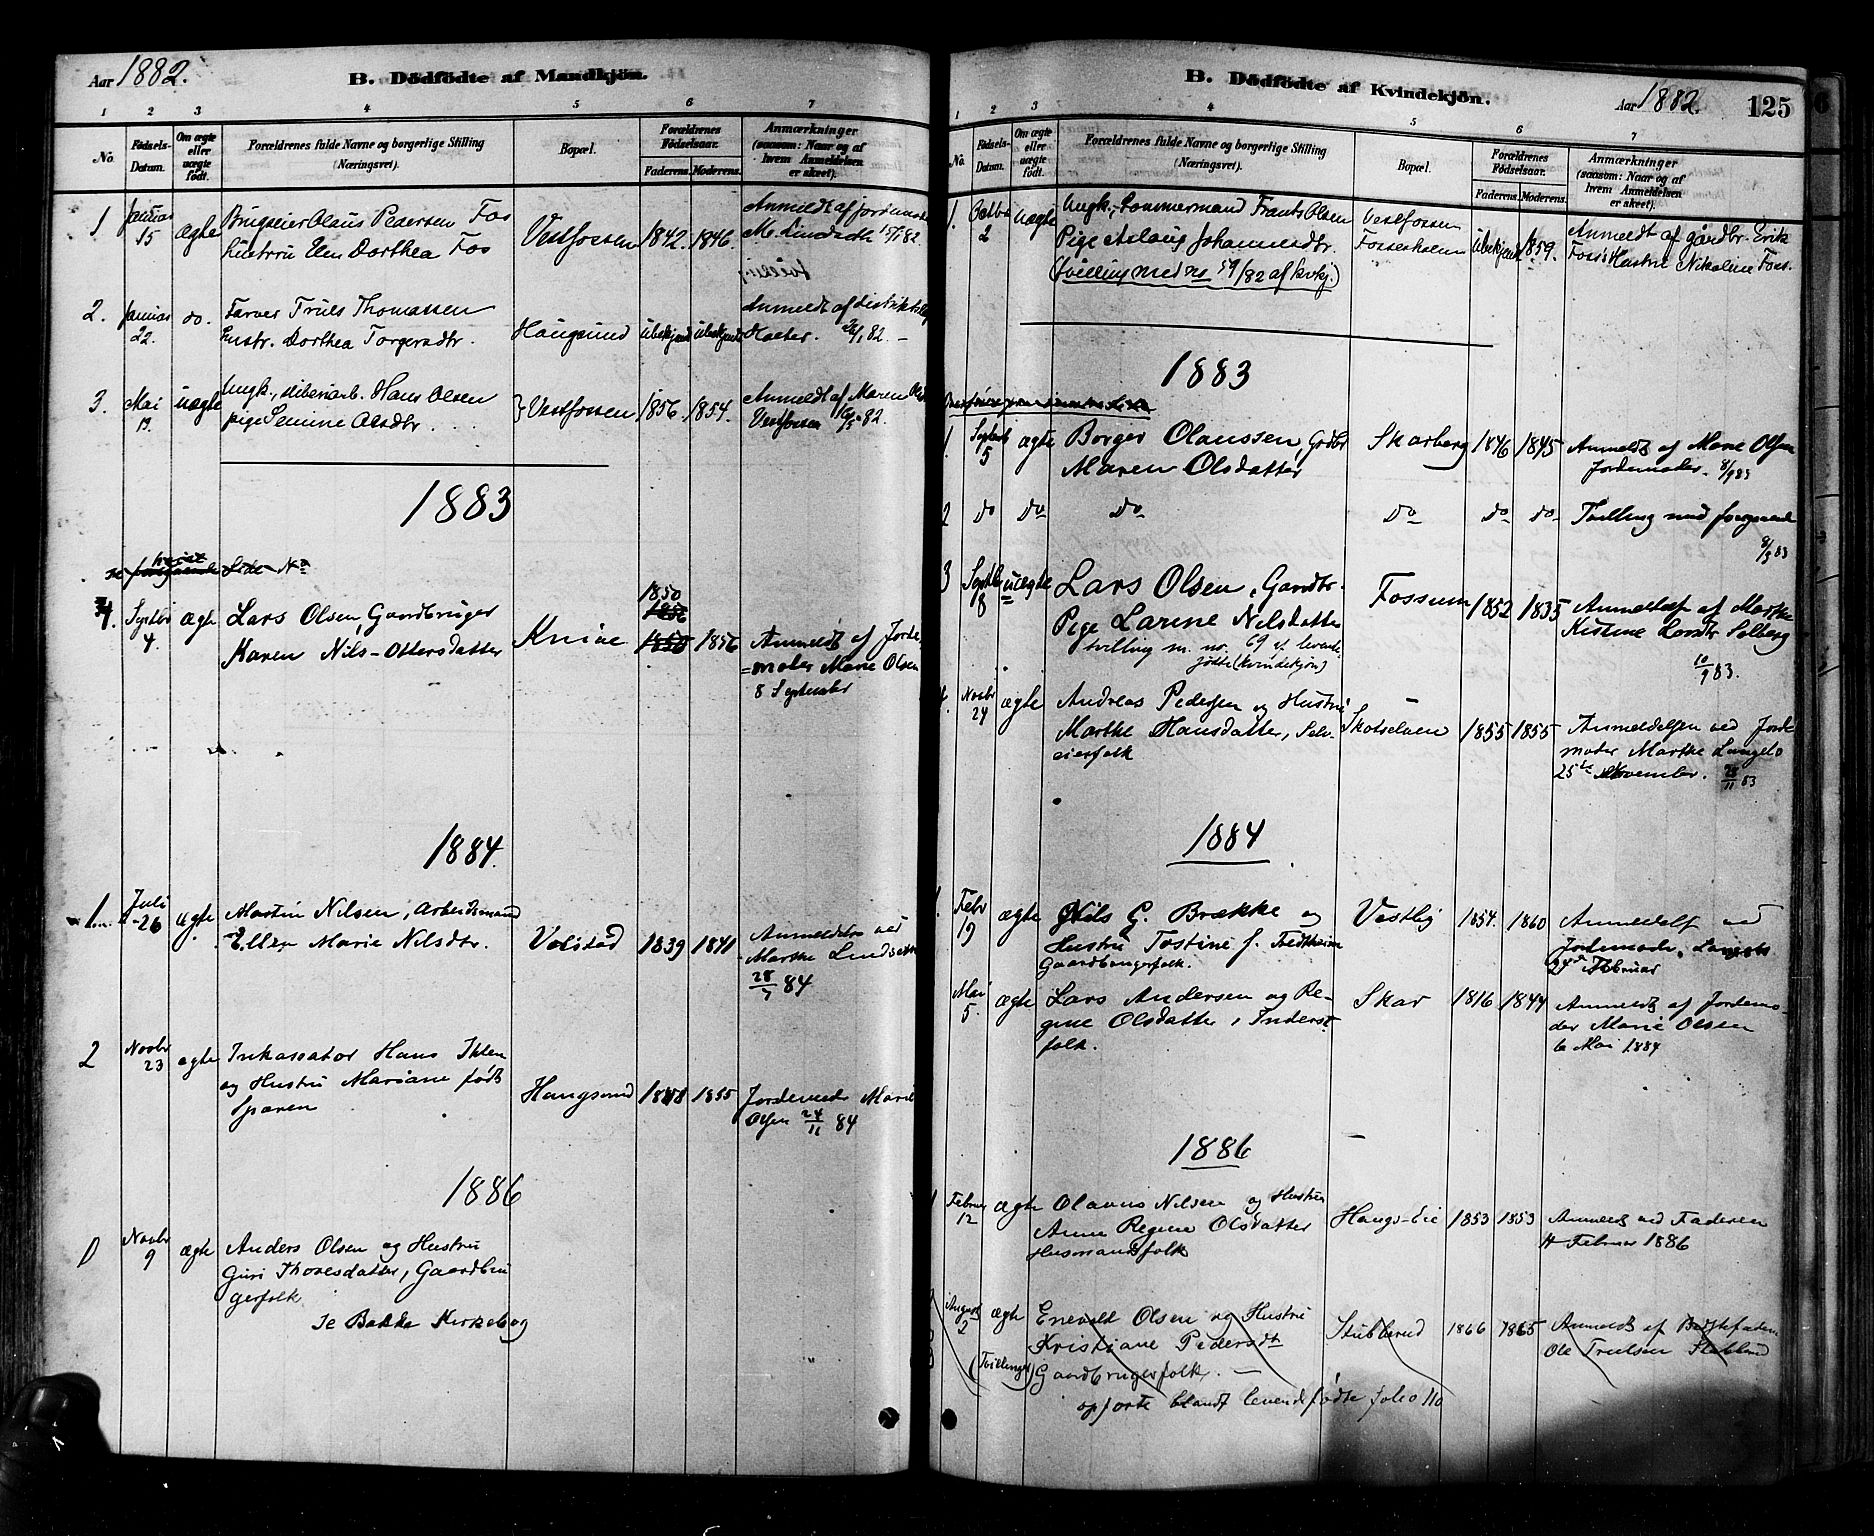 Aar 1882.
B. Dödfödte af Mandkjön.
1 2 3 4 5 6 7
No. Födsels-Datum. Om ægte eller uægte födt. Forældrenes fulde Navne og borgerlige Stilling (Næringsvei). Bopæl. Forældrenes Födselsaar. Faderens. Moderens. Anmærkninger (saasom: Naar og af hvem Anmeldelsen er skeet).
1 Januar 15 ægte Brugseier Olaus Pedersen Fos Vestfossen 1842. 1846. Anmeldt af Jordemoder
Hustru Elen Dorthea Fos M. Lindseth 15/1 82
2. Januar 22. do. Farver Truls Thomassen Haugsund ubekjendt ubekjendt Anmeldt af
Hustr. Dorthea Torgersdtr. 82.
3. Mai 19. uægte Ungk., Hans Olsen Vestfossen 1856. 1854. Anmeldt af Maren
pige Semine Olsdtr. Vestfossen 82.
1883
Side No
4. Septbr 4. ægte Lars Olsen, Gaardbruger Kniae 1850 1856 Anmeldt af Jorde
Karen Nils-Ottersdatter =moder Marie Olsen
8 September
1884.
1 Juli 26 ægte Martin Nilsen, Arbeidsmand Volstad 1839 1841 Anmeldelse ved
Ellen Marie Nilsdtr. Marthe Lindseth
28/7 84
2 Novbr 23 ægte Inkassator Hans Haugsund 1848 1855 Jordemoder Marie
og Hustru Mariane født Olsen 24/11 84
Sparen
1886
Novbr 9 ægte Anders Olsen og Hustru
Guri Thovesdatter, Gaardbru
gerfolk
Se Bakke Kirkebog
B. Dödfödte af Kvindekjön.
Aar 1882. 125
1 2 3 4 5 6 7
No. Födsels-Datum. Om ægte eller uægte födt. Forældrenes fulde Navne og borgerlige Stilling (Næringsvei). Bopæl. Forældrenes Födselsaar. Faderens. Moderens. Anmærkninger (saasom: Naar og af hvem Anmeldelsen er skeet).
1. 2 uægte Ungk., Frants Olsen Vestfossen ubekjendt 1859. Anmeldt af gårdbr. Erik
Pige Aslaug Johannesdtr. Fossesholm Foss's Hustru Nikoline Foss.
(tvilling med no 59/82 af kvkj.)
1883
1 Septbr 5 ægte Borger Olaussen, Grdbr Skarberg 1846 1845 Anmeldt af Marie Olsen
Maren Olsdatter Jordemoder. 8/9 83
2 do do do do do do Tvilling med foregaaende
8/9 83
3 Septbr 18 uægte Lars Olsen, Gaardbr. Fossum 1852 1835 Anmeldt af Marthe
Pige Larine Nilsdatter Kistine Larsdtr Solberg
tvilling m. no. 69 af levende 10/9 83.
fødte (kvindekjøn)
4. Novbr 24 ægte Andreas Pedersen og Hustru Skotselven 1855 1855 Anmeldelsen ved Jorde
Marthe Hansdatter, Selv- moder Marthe Langelo
eierfolk 25de November. 11 83
1884
1. Febr 19 ægte Nils G. Brække og Vestby 1854. 1860 Anmeldelse ved
Hustru Tostine f. Jordemoder Langelo
Gaardbrugerfolk. Februar
Mai 5. ægte Lars Andersen og Re- Skar 1816 1844 Anmeldt af Jordemo-
gine Olsdatter, Inderst der Marie Olsen
folk. 6 Mai 1884
1886
1 Februar 12 ægte Olavus Nilsen og Hustru Haugs-Eie 1853 1853 Anmeldt ved Faderen
Anne Regine Olsdatter Februar 1886
Husmandsfolk
August 2 ægte Enevald Olsen og Hustru Stubberud 1866 1865 Anmeldt af Bedstefaderen
Kristiane Pedersdtr Ole Truelsen Stubberud
(Tvillinger) Gaardbrugerfolk.
opførte blandt levendefødte folio 110